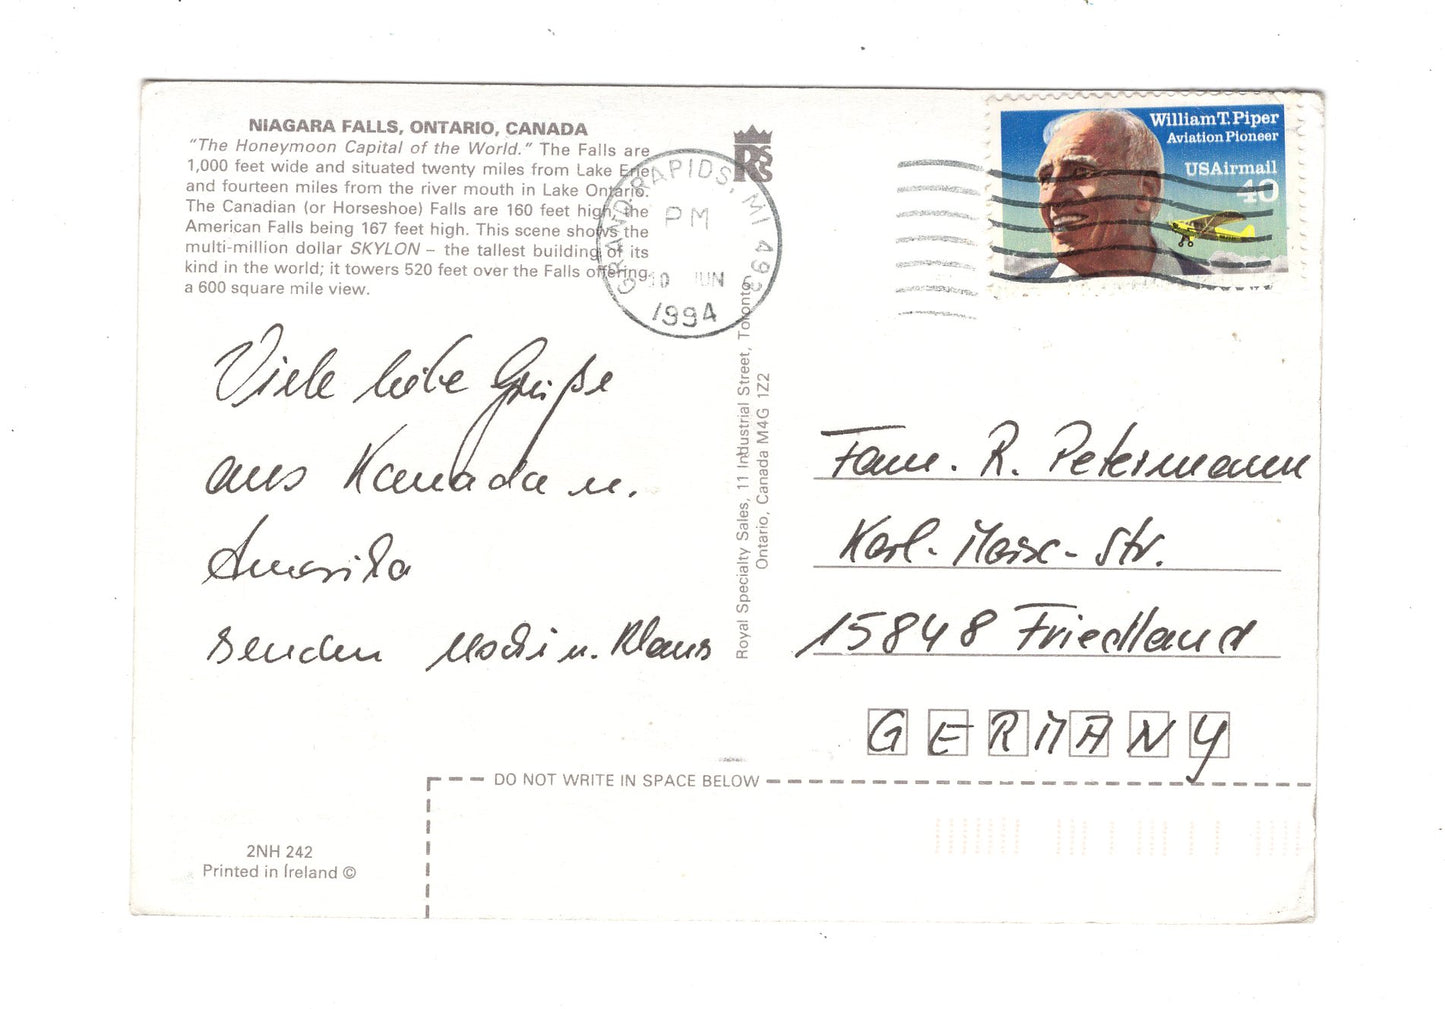 NIAGARA FALLS, ONTARIO, CANADA
"The Honeymoon Capital of the World." The Falls are
1,000 feet wide and situated twenty miles from Lake Erie
and fourteen miles from the river mouth in Lake Ontario.
The Canadian (or Horseshoe) Falls are 160 feet high, the
American Falls being 167 feet high. This scene shows the
multi-million dollar SKYLON – the tallest building of its
kind in the world; it towers 520 feet over the Falls offering
a 600 square mile view.
RS
GRAND RAPIDS, MI 493
PM
10 JUN
1994
William T. Piper
Aviation Pioneer
USAirmail
40
Viele liebe Grüße
aus Kanada u.
Amerika
senden u. Klaus
Royal Specialty Sales, 11 Industrial Street, Toronto,
Ontario, Canada M4G 1Z2
Fam. R. Petermann
Karl-Marx-Str.
15848 Friedland
GERMANY
DO NOT WRITE IN SPACE BELOW
2NH 242
Printed in Ireland ©